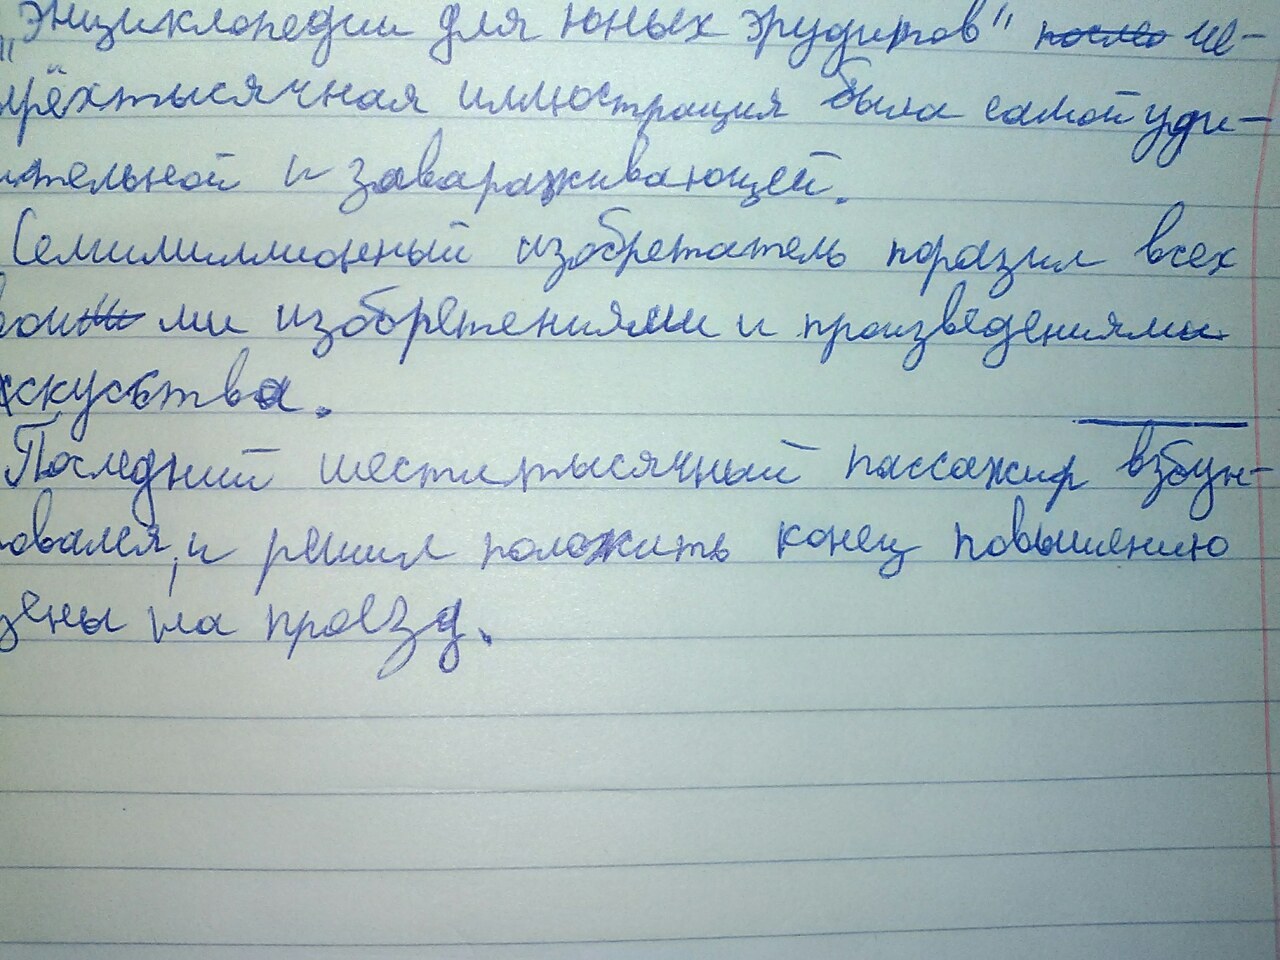 "Энциклопедии для юных эрудитов" че-
трёхтысячная иллюстрация была самой уди-
ительной и завараживающей.
Семимиллионный изобретатель поразил всех
воими изобретениями и произведениями
искусьтва.
Последний шеститысячный пассажир взбун-
овался, и решил положить конец повышению
цены на проезд.